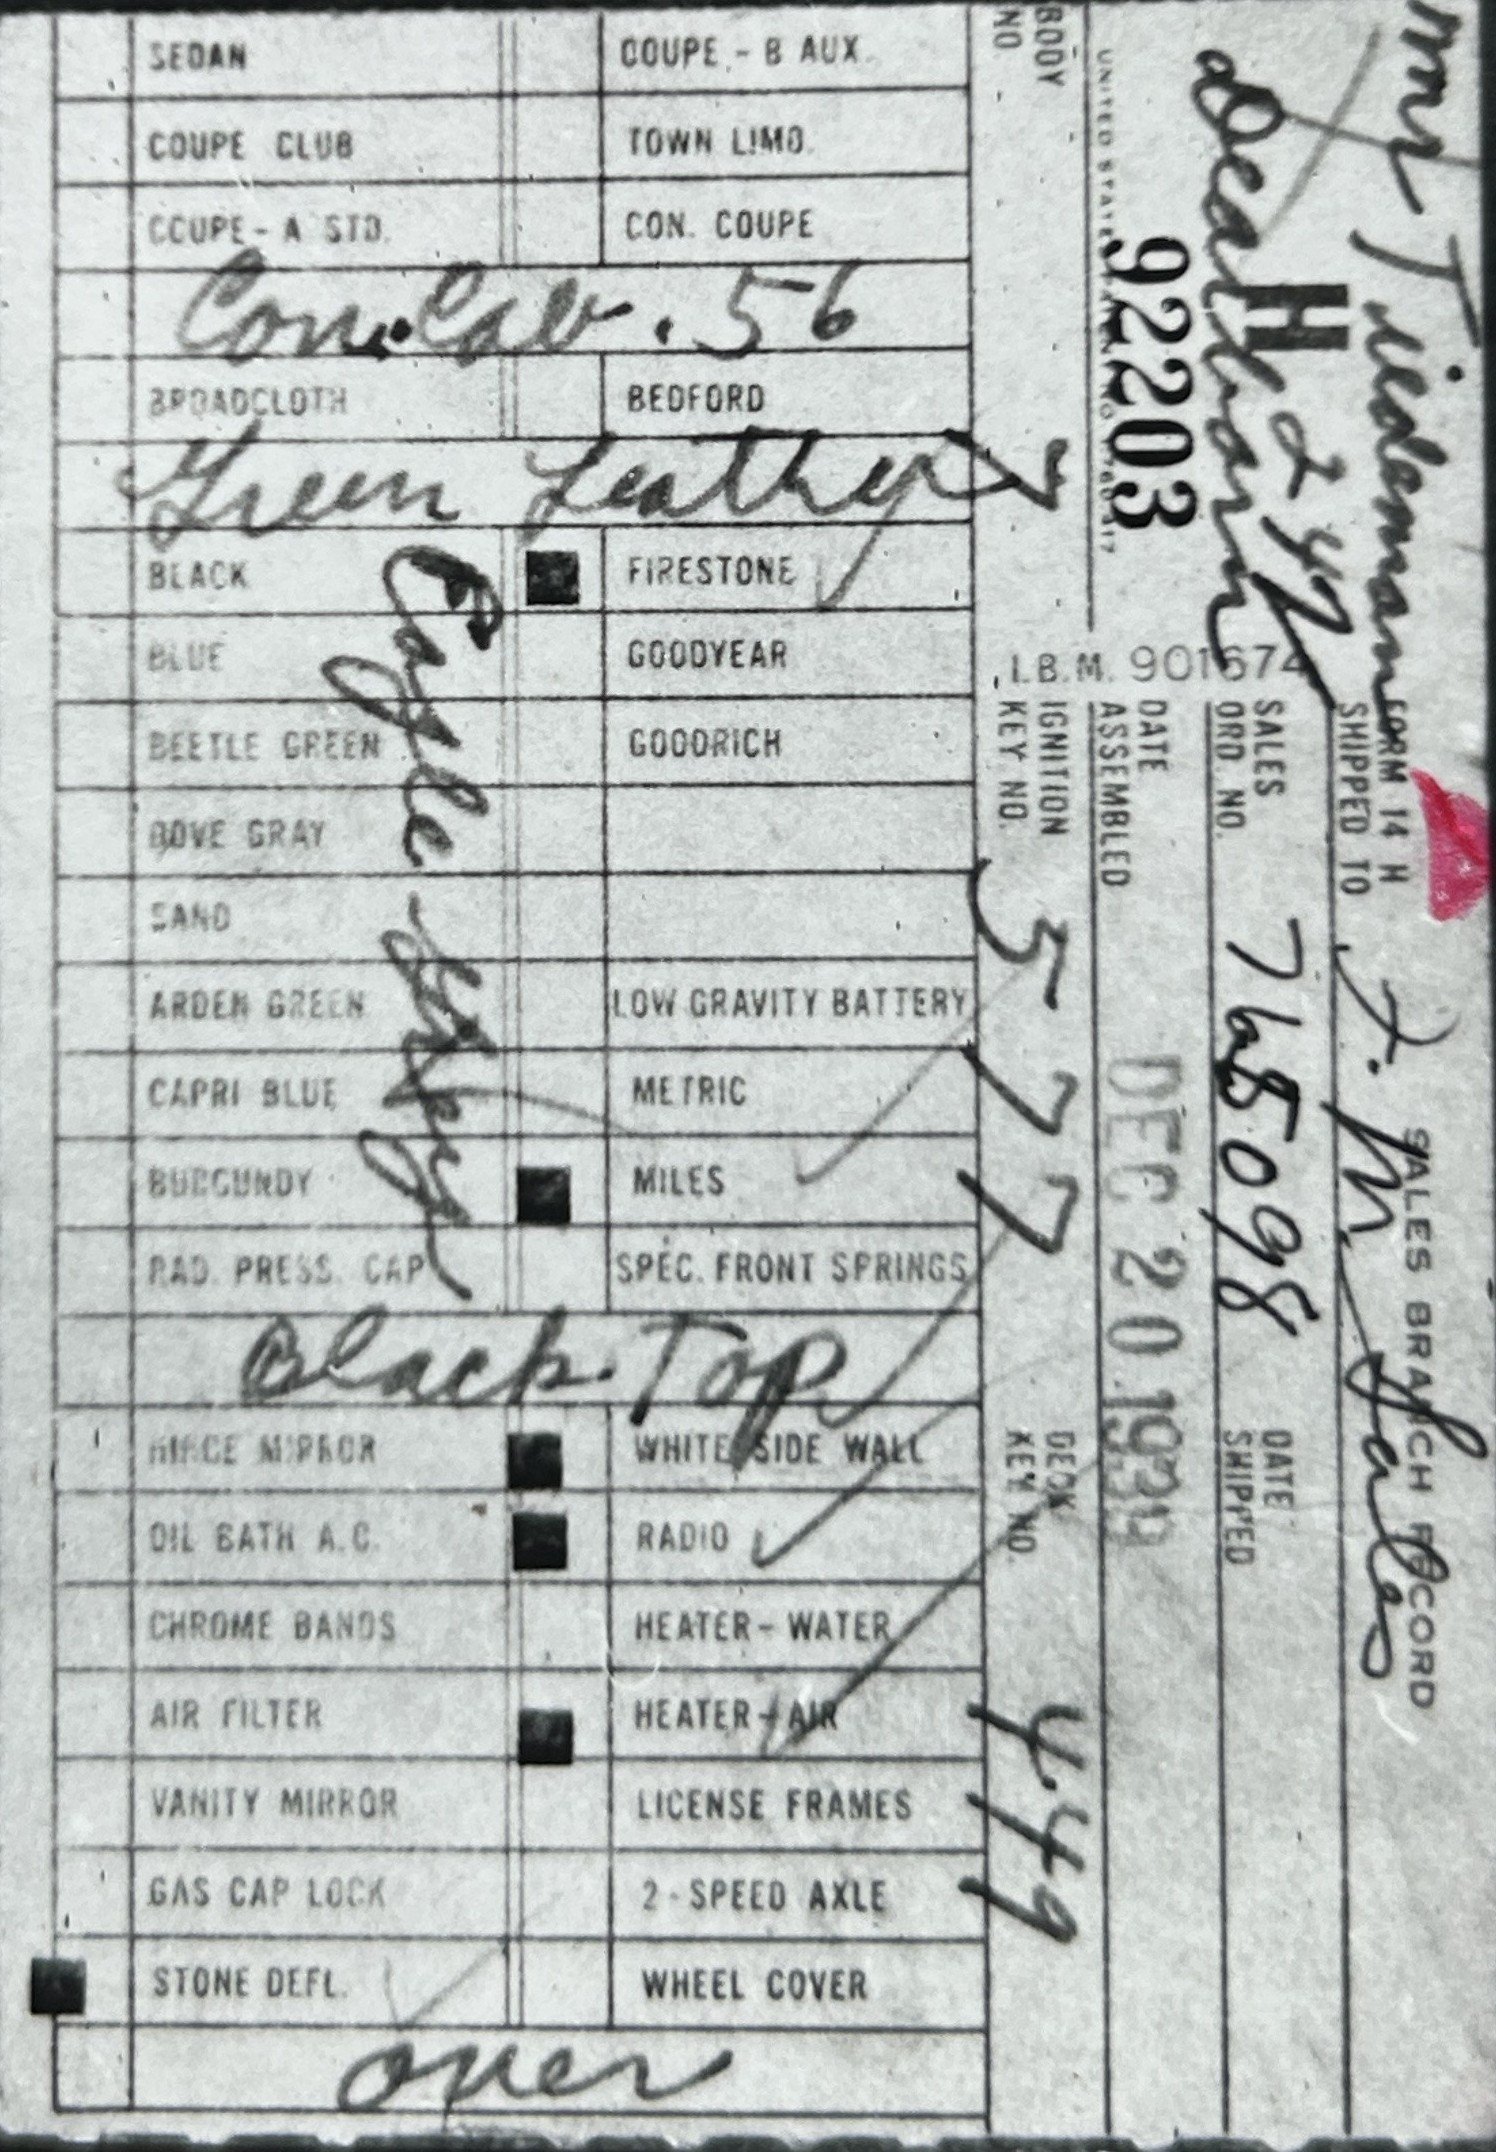 SEDAN
COUPE - B AUX.
COUPE CLUB
TOWN LIMO.
COUPE - A STD.
CON. COUPE
Con. Cab. 56
BROADCLOTH
BEDFORD
Green Leather
BLACK
FIRESTONE
BLUE
GOODYEAR
BEETLE GREEN
GOODRICH
DOVE GRAY
SAND
ARDEN GREEN
LOW GRAVITY BATTERY
CAPRI BLUE
METRIC
BURGUNDY
MILES
RAD. PRESS. CAP
SPEC. FRONT SPRINGS
Eagle Grey
Black Top
HINGE MIRROR
WHITE SIDE WALL
OIL BATH A.C.
RADIO
CHROME BANDS
HEATER - WATER
AIR FILTER
HEATER - AIR
VANITY MIRROR
LICENSE FRAMES
GAS CAP LOCK
2 - SPEED AXLE
STONE DEFL.
WHEEL COVER
over
Mr Tiedemann
FORM 14 H
SALES BRANCH RECORD
SHIPPED TO
F. M. Sales
Dearborn
H
92203
I.B.M. 901674
SALES ORD. NO.
765098
DATE SHIPPED
DATE ASSEMBLED
DEC 20 1939
BODY NO.
7
IGNITION KEY NO.
577
DECK KEY NO.
449